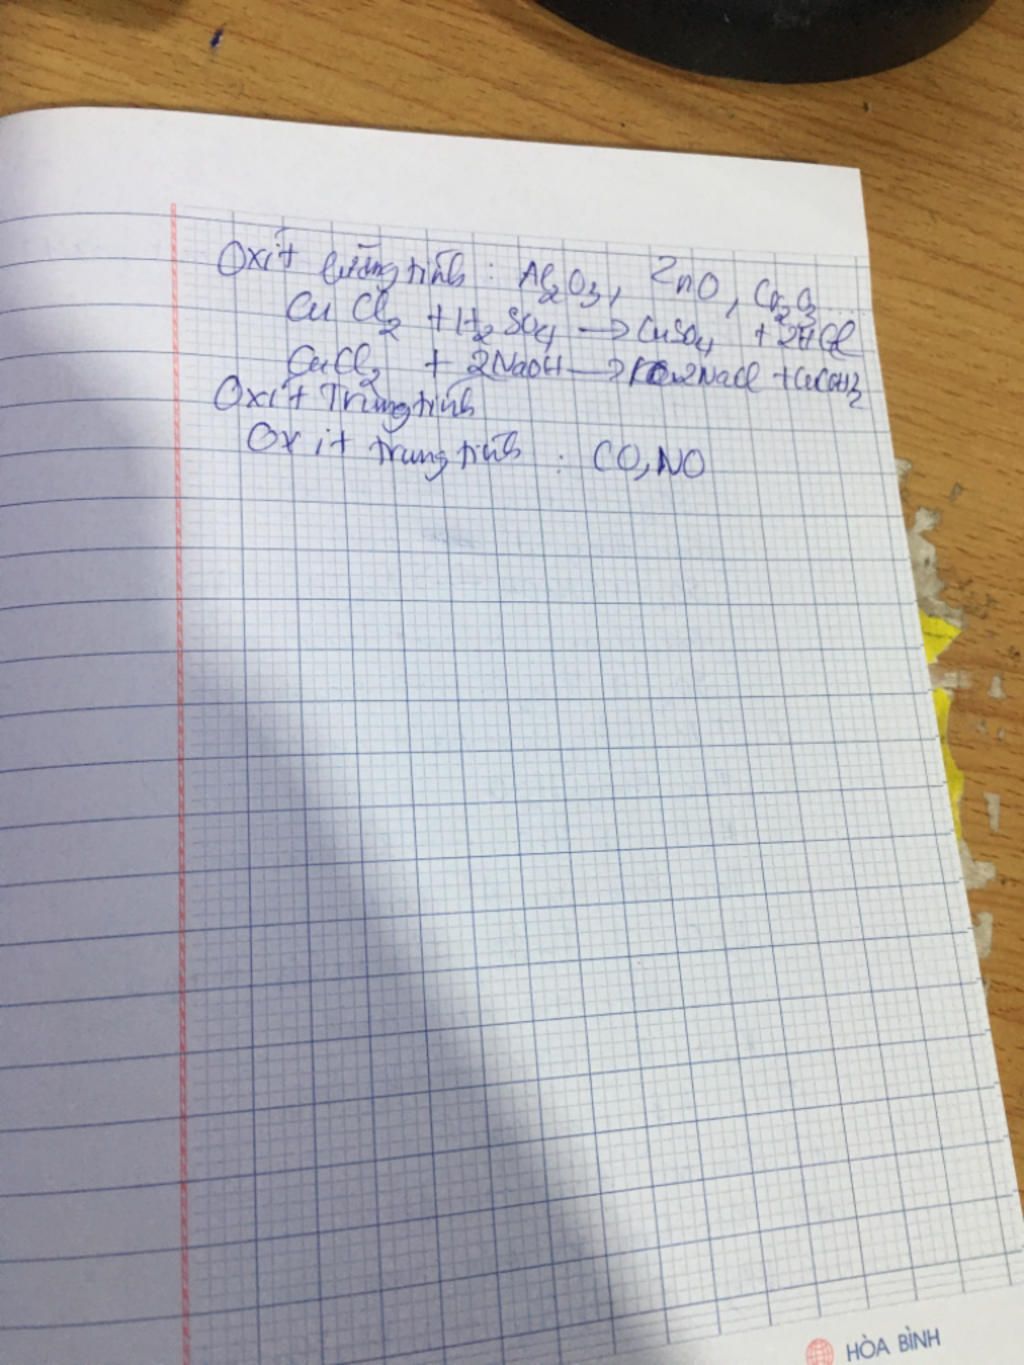 Oxit lưỡng tính : Al2O3, ZnO, Cr2O3...
CuCl2 + H2SO4 → CuSO4 + 2HCl
CuCl2 + 2NaOH → 2NaCl + Cu(OH)2
Oxit Trung tính
Oxit trung tính : CO, NO
HÒA BÌNH